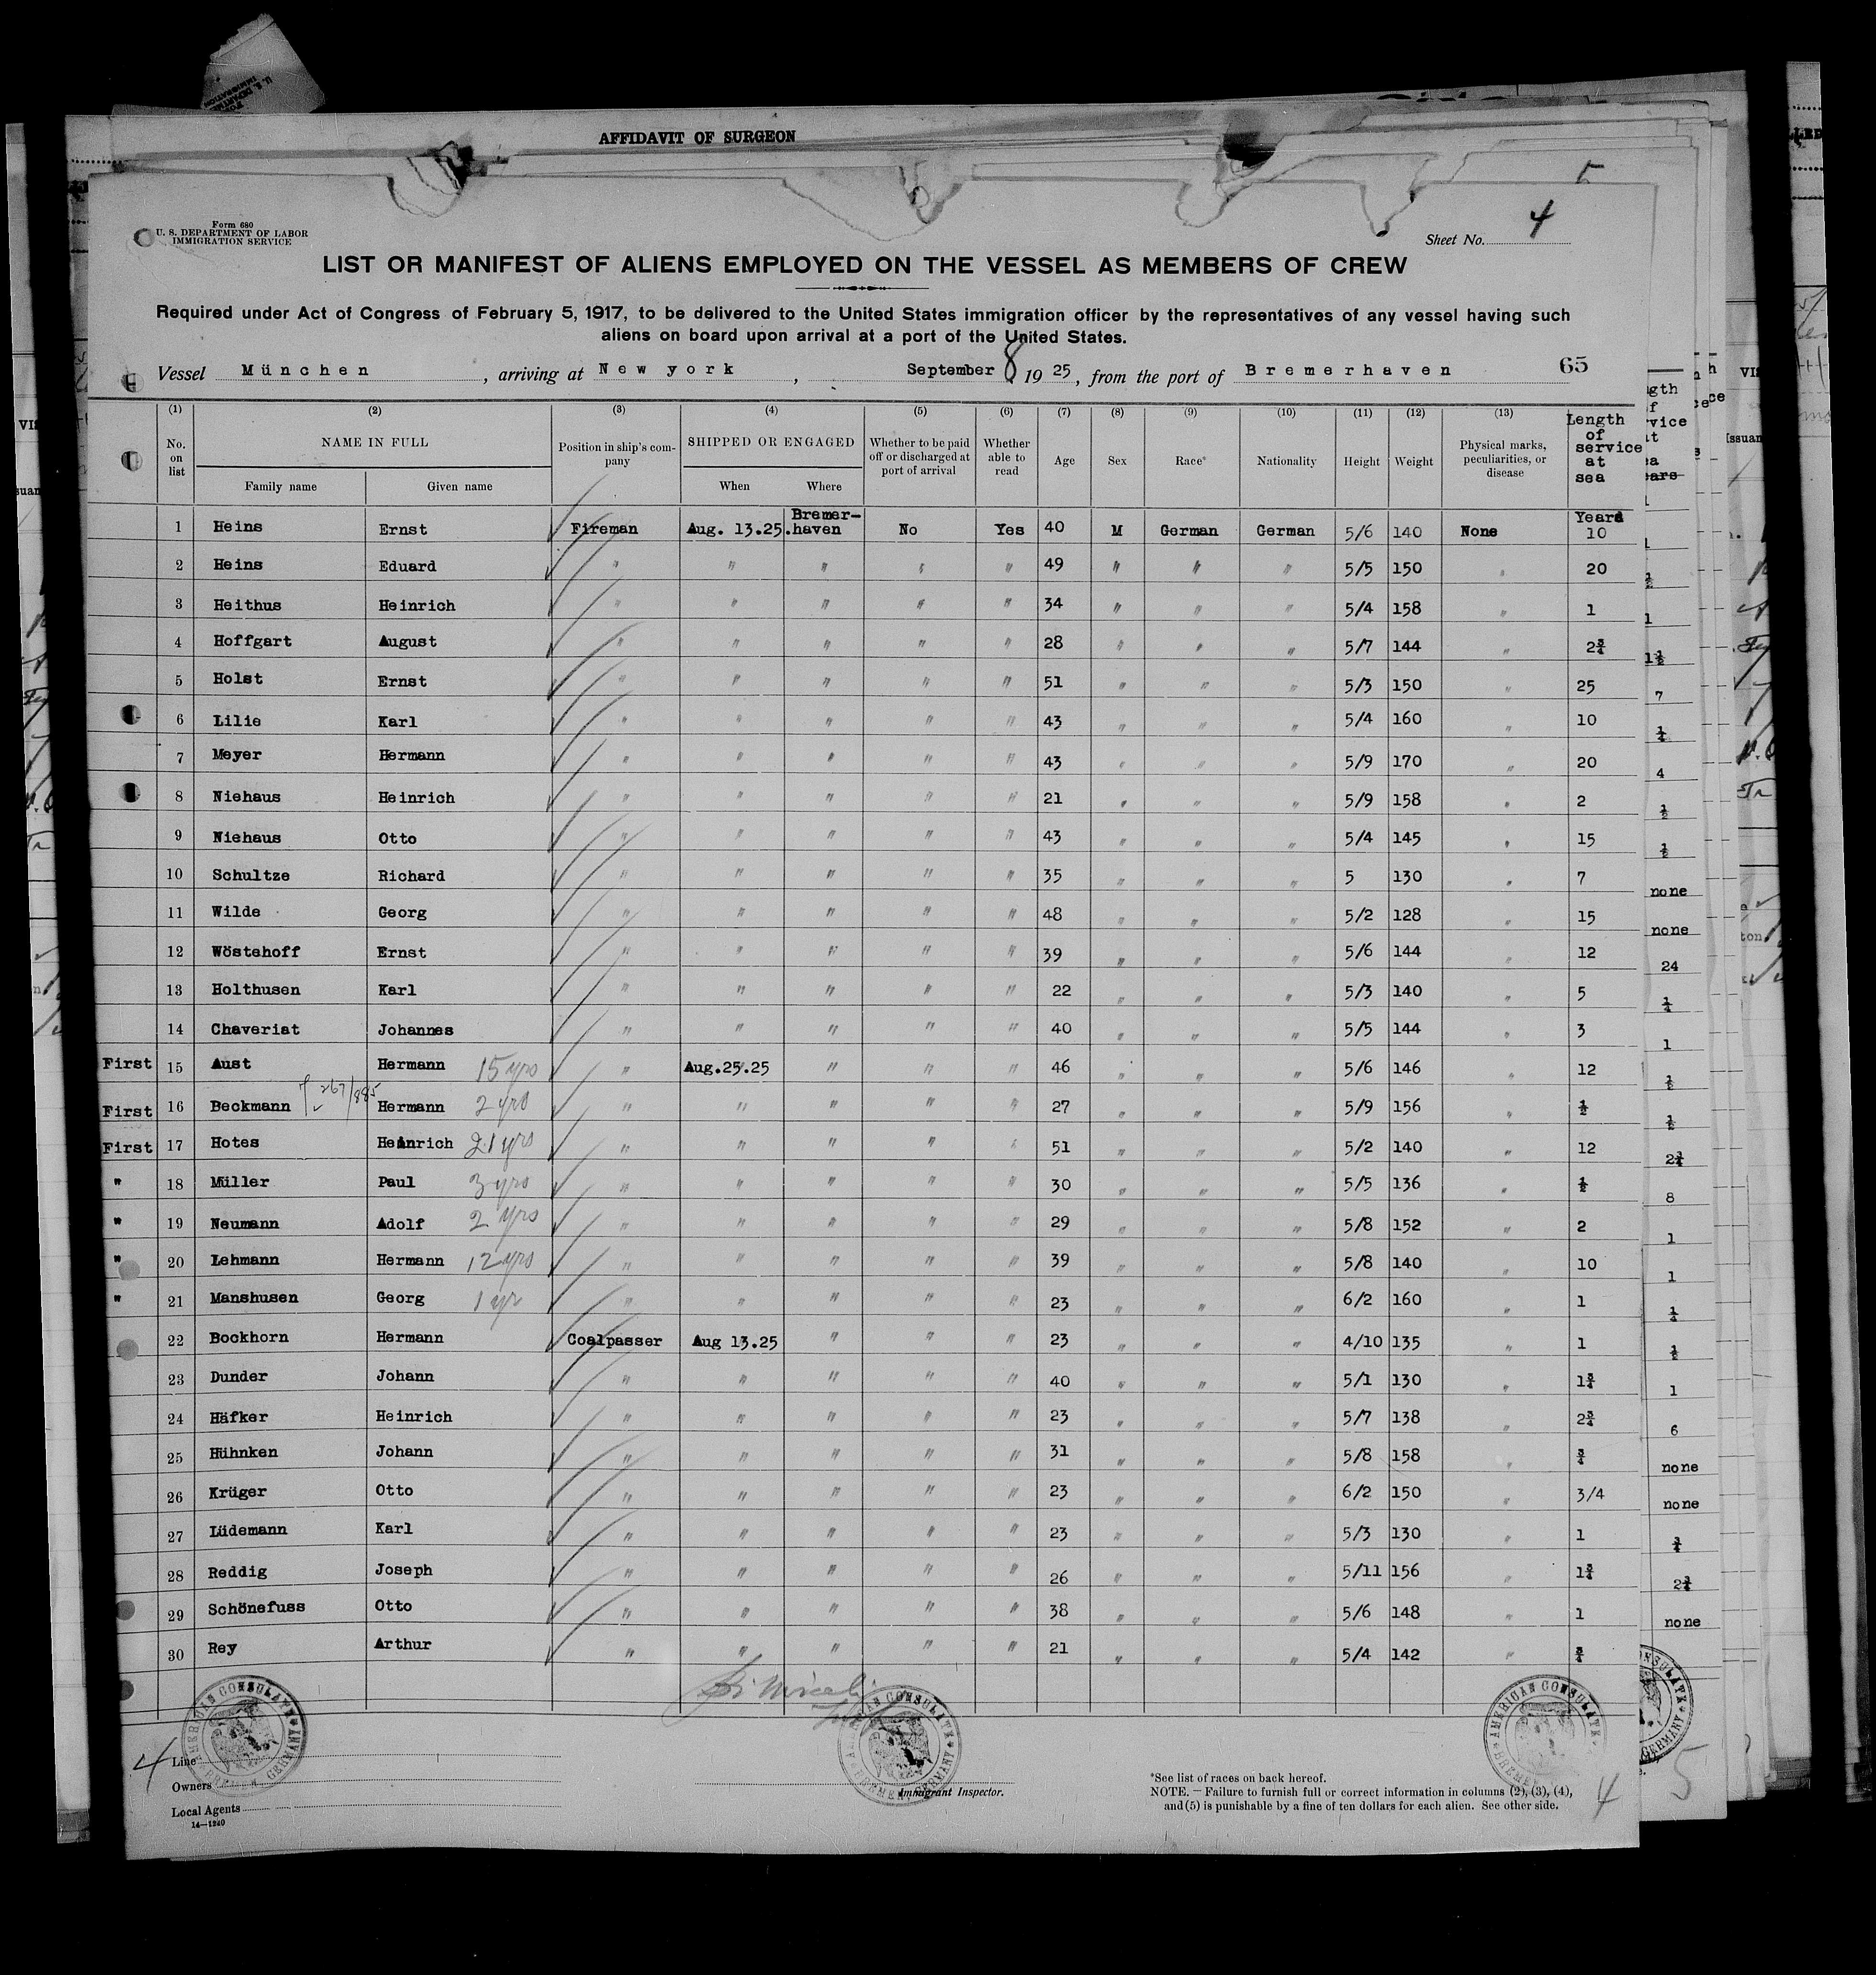 AFFIDAVIT OF SURGEON
Form 680
U. S. DEPARTMENT OF LABOR
IMMIGRATION SERVICE
Sheet No. 4
LIST OR MANIFEST OF ALIENS EMPLOYED ON THE VESSEL AS MEMBERS OF CREW
Required under Act of Congress of February 5, 1917, to be delivered to the United States immigration officer by the representatives of any vessel having such
aliens on board upon arrival at a port of the United States.
Vessel München, arriving at New york, September 8, 1925, from the port of Bremerhaven 65
(1) (2) (3) (4) (5) (6) (7) (8) (9) (10) (11) (12) (13)
No. on list NAME IN FULL Family name Given name Position in ship's company SHIPPED OR ENGAGED When Where Whether to be paid off or discharged at port of arrival Whether able to read Age Sex Race* Nationality Height Weight Physical marks, peculiarities, or disease Length of service at sea
1 Heins Ernst Fireman Aug. 13.25. Bremer-haven No Yes 40 M German German 5/6 140 None Years 10
2 Heins Eduard " " " " " 49 " " " 5/5 150 " 20
3 Heithus Heinrich " " " " " 34 " " " 5/4 158 " 1
4 Hoffgart August " " " " " 28 " " " 5/7 144 " 2¾
5 Holst Ernst " " " " " 51 " " " 5/3 150 " 25
6 Lilie Karl " " " " " 43 " " " 5/4 160 " 10
7 Meyer Hermann " " " " " 43 " " " 5/9 170 " 20
8 Niehaus Heinrich " " " " " 21 " " " 5/9 158 " 2
9 Niehaus Otto " " " " " 43 " " " 5/4 145 " 15
10 Schultze Richard " " " " " 35 " " " 5 130 " 7
11 Wilde Georg " " " " " 48 " " " 5/2 128 " 15
12 Wöstehoff Ernst " " " " " 39 " " " 5/6 144 " 12
13 Holthusen Karl " " " " " 22 " " " 5/3 140 " 5
14 Chaveriat Johannes " " " " " 40 " " " 5/5 144 " 3
First 15 Aust Hermann 15 yrs " Aug.25.25 " " " 46 " " " 5/6 146 " 12
First 16 Beckmann 267/885 Hermann 2 yrs " " " " " 27 " " " 5/9 156 " ½
First 17 Hotes Heinrich 21 yrs " " " " " 51 " " " 5/2 140 " 12
" 18 Müller Paul 3 yrs " " " " " 30 " " " 5/5 136 " ½
" 19 Neumann Adolf 2 yrs " " " " " 29 " " " 5/8 152 " 2
" 20 Lehmann Hermann 12 yrs " " " " " 39 " " " 5/8 140 " 10
" 21 Manshusen Georg 1 yr " " " " " 23 " " " 6/2 160 " 1
22 Bockhorn Hermann Coalpasser Aug 13.25 " " " 23 " " " 4/10 135 " 1
23 Dunder Johann " " " " " 40 " " " 5/1 130 " 1¾
24 Häfker Heinrich " " " " " 23 " " " 5/7 138 " 2¾
25 Hühnken Johann " " " " " 31 " " " 5/8 158 " ¾
26 Krüger Otto " " " " " 23 " " " 6/2 150 " 3/4
27 Lüdemann Karl " " " " " 23 " " " 5/3 130 " 1
28 Reddig Joseph " " " " " 26 " " " 5/11 156 " 1¾
29 Schönefuss Otto " " " " " 38 " " " 5/6 148 " 1
30 Rey Arthur " " " " " 21 " " " 5/4 142 " ¾
AMERICAN CONSULATE BREMEN GERMANY
AMERICAN CONSULATE BREMEN GERMANY
AMERICAN CONSULATE BREMEN
4
Line
Owners
Local Agents
14—1240
Immigrant Inspector.
*See list of races on back hereof.
NOTE. — Failure to furnish full or correct information in columns (2), (3), (4),
and (5) is punishable by a fine of ten dollars for each alien. See other side.
4
5